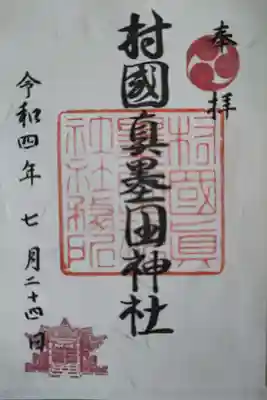 奉拝
村國真墨田神社
令和四年七月二十四日
村國真墨田神社務所